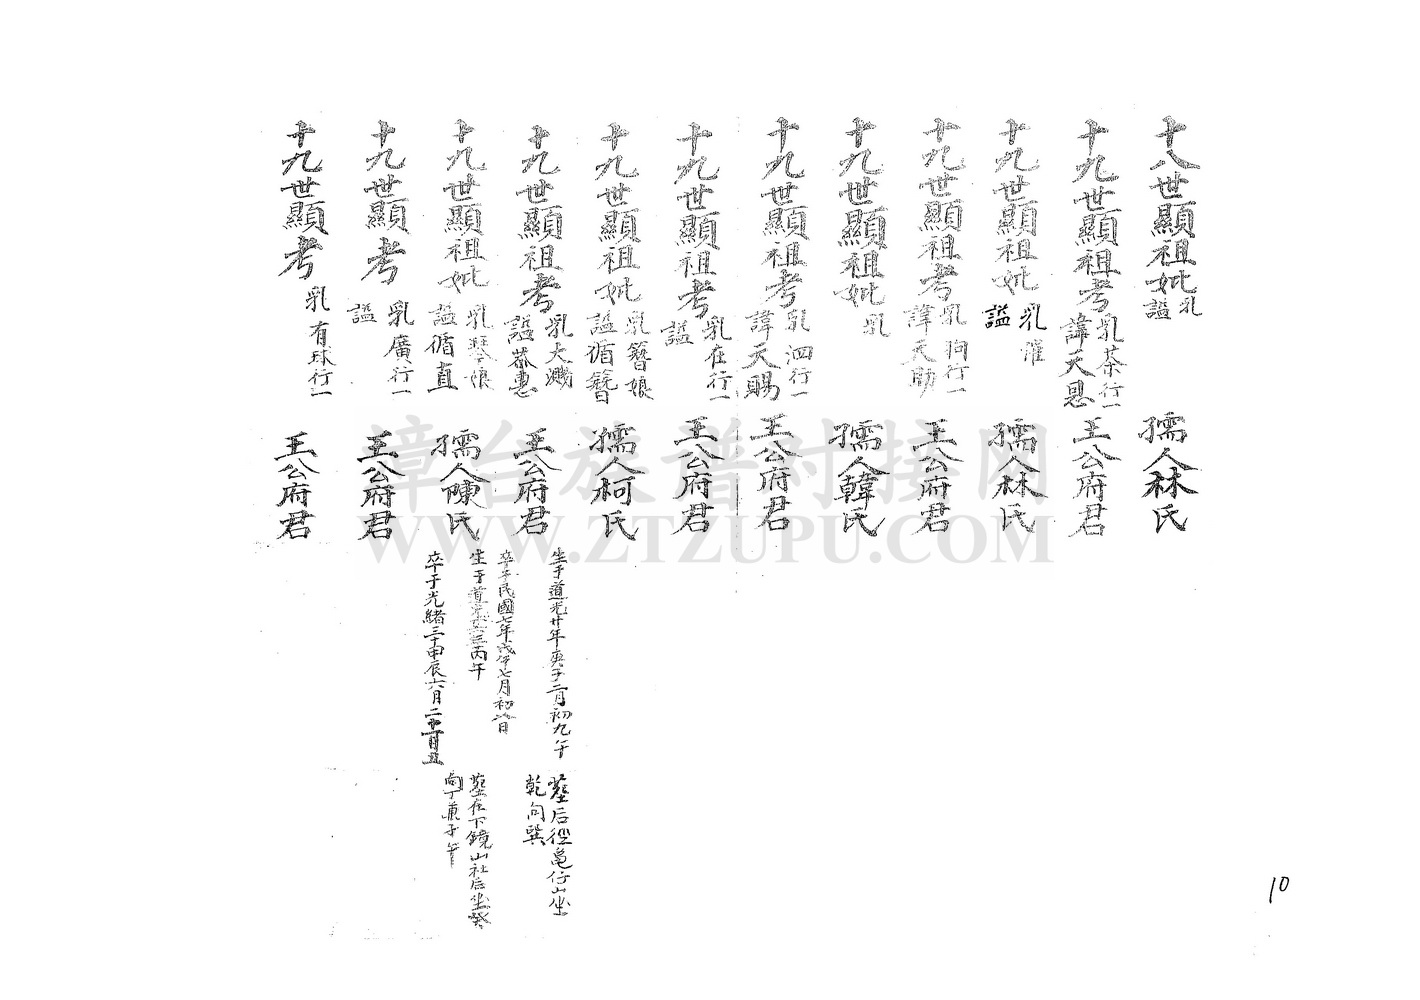 十八世顯祖妣乳謚 孺人林氏
十九世顯祖考乳茶行一諱天恩 王公府君
十九世顯祖妣乳謚 孺人林氏
十九世顯祖考乳狗行一諱天助 王公府君
十九世顯祖妣乳 孺人韓氏
十九世顯祖考乳泗行一諱天賜 王公府君
十九世顯祖考乳在行一謚 王公府君
十九世顯祖妣乳簪娘謚循簪 孺人柯氏
十九世顯祖考乳大濺謚恭惠 王公府君
生于道光廿年庚子二月初九午
卒于民國七年戊午七月初
墓后徑龜仔山坐
乾向巽
十九世顯祖妣乳娘謚循直 孺人陳氏
生于道光丙午
卒于光緒三十甲辰六月二
墓在下鏡山社后坐癸
向丁兼子午
十九世顯考乳廣行一謚 王公府君
十九世顯考乳有球行一 王公府君
10
漳台族譜對接网
WWW.ZTZUPU.COM